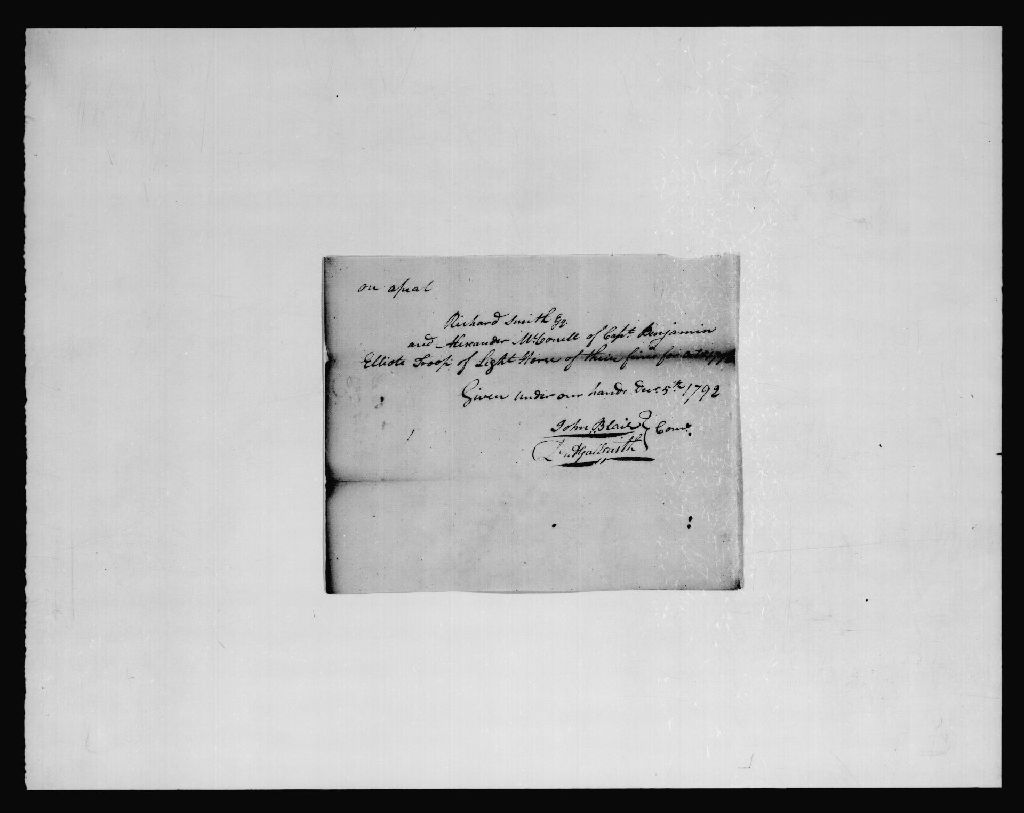 on apeal
Richard Smith Esq.
and Alexander McConell of Capt. Benjamin
Elliots Troop of Light Horse of their fines for
Given under our hands Decr. 5th 1792
John Blair } Comr.
Galbraith